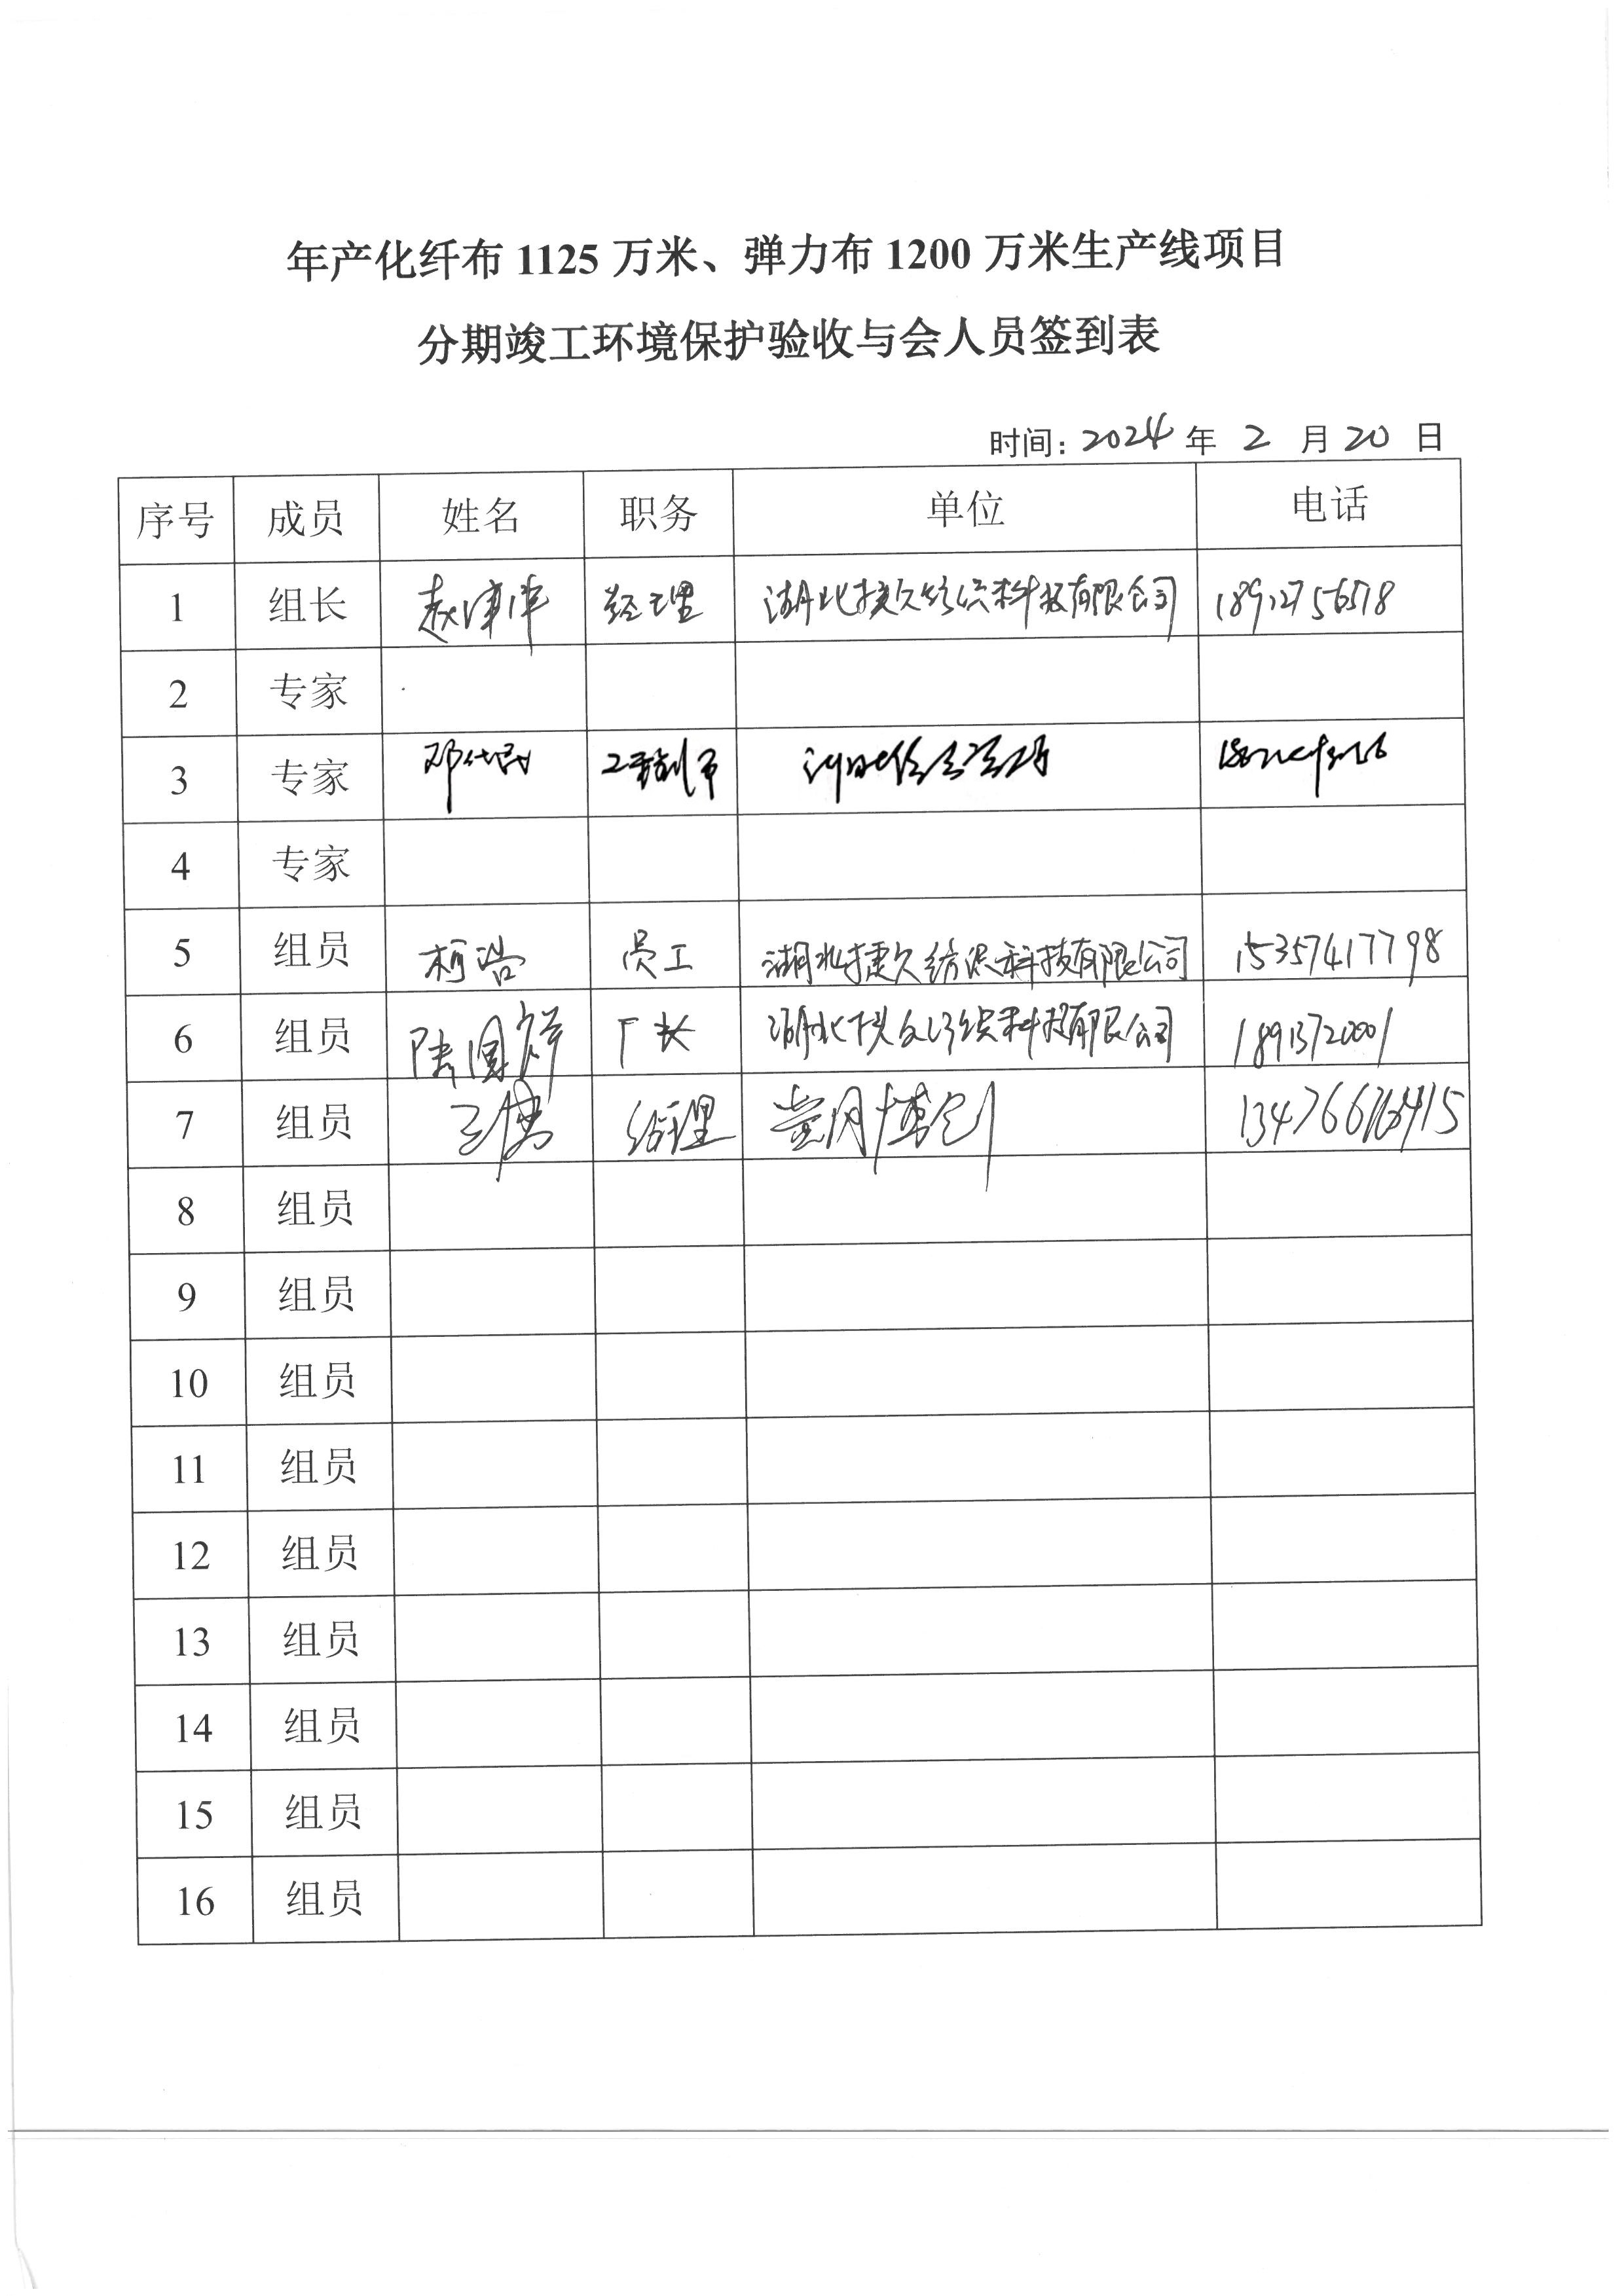 年产化纤布 1125 万米、弹力布 1200 万米生产线项目
分期竣工环境保护验收与会人员签到表
时间：2024 年 2 月 20 日
序号 成员 姓名 职务 单位 电话
1 组长 经理 湖北捷久纺织科技有限公司 18912756518
2 专家
3 专家
4 专家
5 组员 柯浩 员工 湖北捷久纺织科技有限公司 15357417798
6 组员 陆国祥 厂长 湖北捷久纺织科技有限公司
7 组员 经理
8 组员
9 组员
10 组员
11 组员
12 组员
13 组员
14 组员
15 组员
16 组员